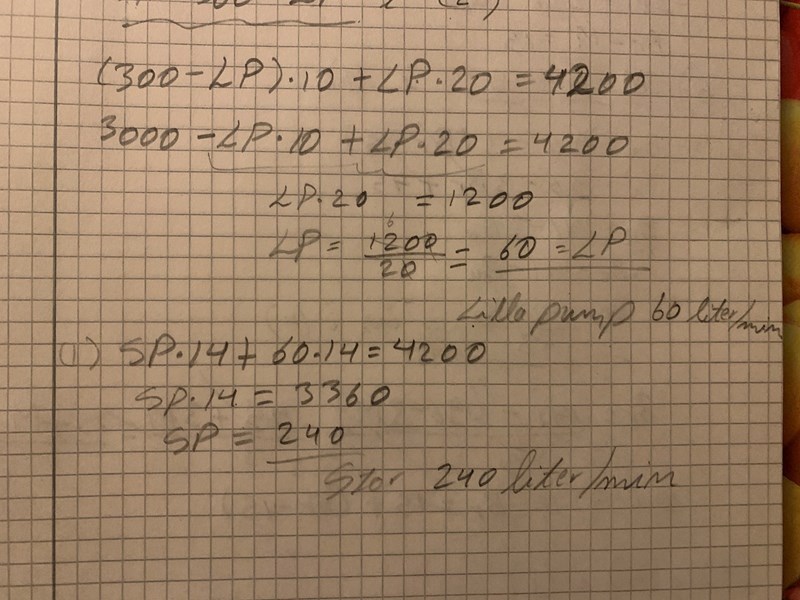 (300-LP)·10 + LP·20 = 4200
3000 - LP·10 + LP·20 = 4200
LP·20 = 1200
LP = 1200/20 = 60 = LP
Lilla pump 60 liter/min
(1) SP·14 + 60·14 = 4200
SP·14 = 3360
SP = 240
Stor 240 liter/min